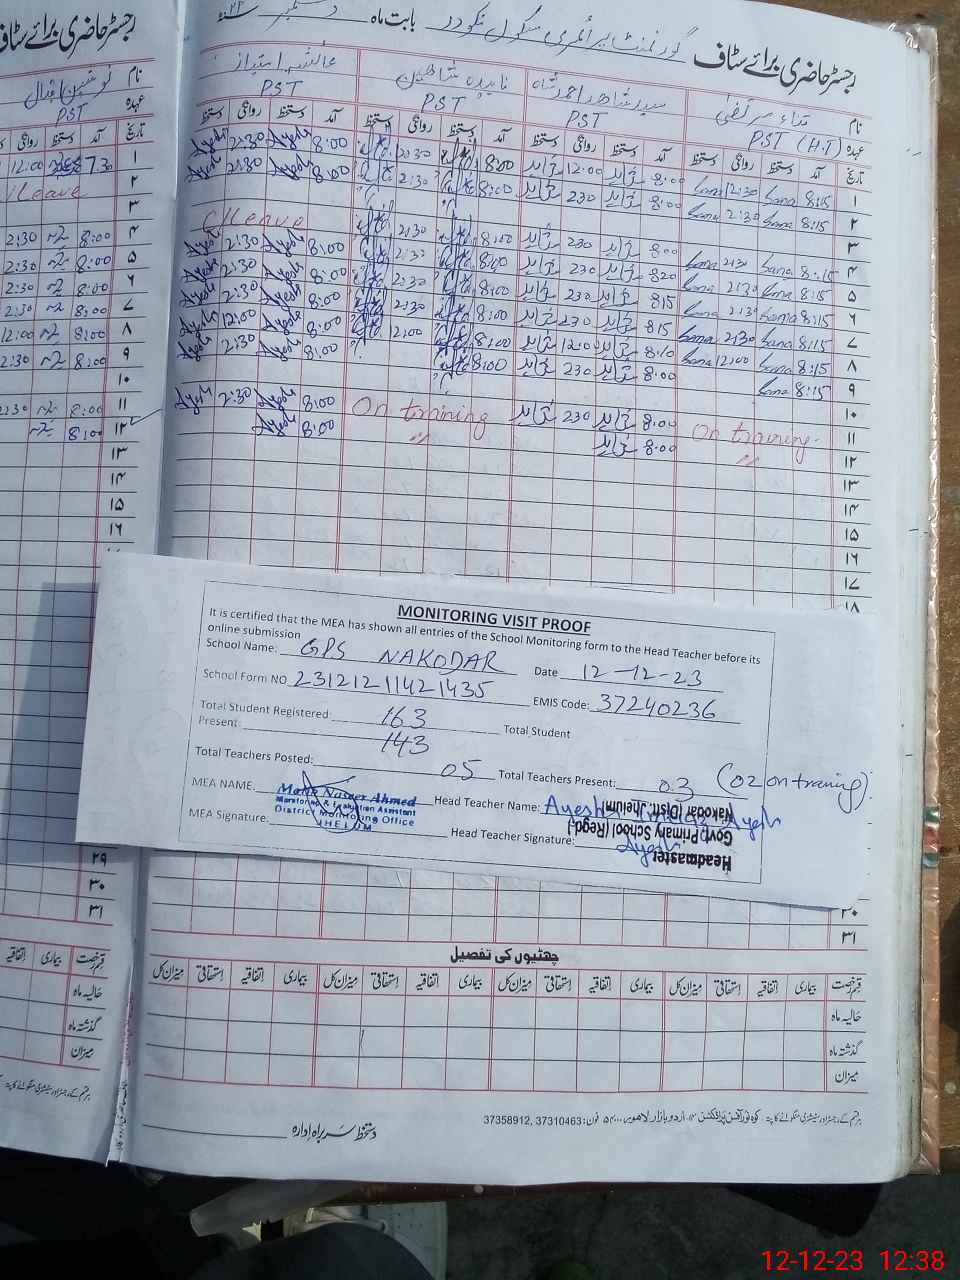 رجسٹر حاضری برائے سٹاف گورنمنٹ پرائمری سکول نکودر بابت ماہ دسمبر ۲۳
نام ثناء مرتضیٰ سید شاھد احمد شاہ ناہیدہ شاھین عائشہ امتیاز
عہدہ PST (H.T) PST PST PST
تاریخ آمد دستخط روانگی دستخط آمد دستخط روانگی دستخط آمد دستخط روانگی دستخط آمد دستخط روانگی دستخط
۱ 8:15 Sana 12:30 Sana 8:00 12:00 8:00 12:30 8:00 Ayesh 2:30 Ayesh
۲ 8:15 Sana 2:30 Sana 8:00 230 8:00 2:30 8:00 Ayesh 2:30 Ayesh
۳
۴ 8:15 Sana 2:30 Sana 8:00 230 8:00 2:30 C/Leave
۵ 8:15 Sana 2:30 Sana 820 230 8:00 2:30 8:00 Ayesh 2:30 Ayesh
۶ 8:15 Sana 2:30 Sana 815 230 8:00 2:30 8:00 Ayesh 2:30 Ayesh
۷ 8:15 Sana 2:30 Sana 815 230 8:00 2:30 8:00 Ayesh 2:30 Ayesh
۸ 8:15 Sana 12:00 Sana 8:10 12:00 8:00 12:00 8:00 Ayesh 12:00 Ayesh
۹ 8:15 Sana 8:00 230 8:00 8:00 Ayesh 2:30 Ayesh
۱۰
۱۱ On training 8:00 230 On training 8:00 Ayesh 2:30 Ayesh
۱۲ " 8:00 " 8:00 Ayesh
۱۳
۱۴
۱۵
۱۶
۱۷
۱۸
MONITORING VISIT PROOF
It is certified that the MEA has shown all entries of the School Monitoring form to the Head Teacher before its
online submission
School Name: GPS NAKODAR Date 12-12-23
School Form NO 23121211421435 EMIS Code: 37240236
Total Student Registered: 163 Total Student
Present: 143
Total Teachers Posted: 05 Total Teachers Present: 03 (02 on training)
MEA NAME. Malik Naseer Ahmed Head Teacher Name: Ayesha Imtiaz Ayesh
Monitoring & Evaluation Assistant
District Monitoring Office
JHELUM
MEA Signature: Head Teacher Signature: Ayesh
Headmaster
Govt: Primary School (Regd.)
Nakodar (Distt: Jhelum)
۳۰
۳۱
چھٹیوں کی تفصیل
قسم رخصت بیماری اتفاقیہ استحقاقی میزان کل بیماری اتفاقیہ استحقاقی میزان کل بیماری اتفاقیہ استحقاقی میزان کل بیماری اتفاقیہ استحقاقی میزان کل
حالیہ ماہ
گذشتہ ماہ
میزان
فون: 37310463, 37358912
دستخط سربراہ ادارہ
رجسٹر حاضری برائے سٹاف
نام نوشین اقبال
عہدہ PST
تاریخ آمد دستخط روانگی
۱ 7:30 12:00
۲ C/Leave
۳
۴ 8:00 2:30
۵ 8:00 2:30
۶ 8:00 2:30
۷ 8:00 2:30
۸ 8:00 12:00
۹ 8:00 2:30
۱۰
۱۱ 8:00 2:30
۱۲ 8:00
۱۳
۱۴
۱۵
۱۶
۲۹
۳۰
۳۱
قسم رخصت بیماری اتفاقیہ
حالیہ ماہ
گذشتہ ماہ
میزان
12-12-23 12:38